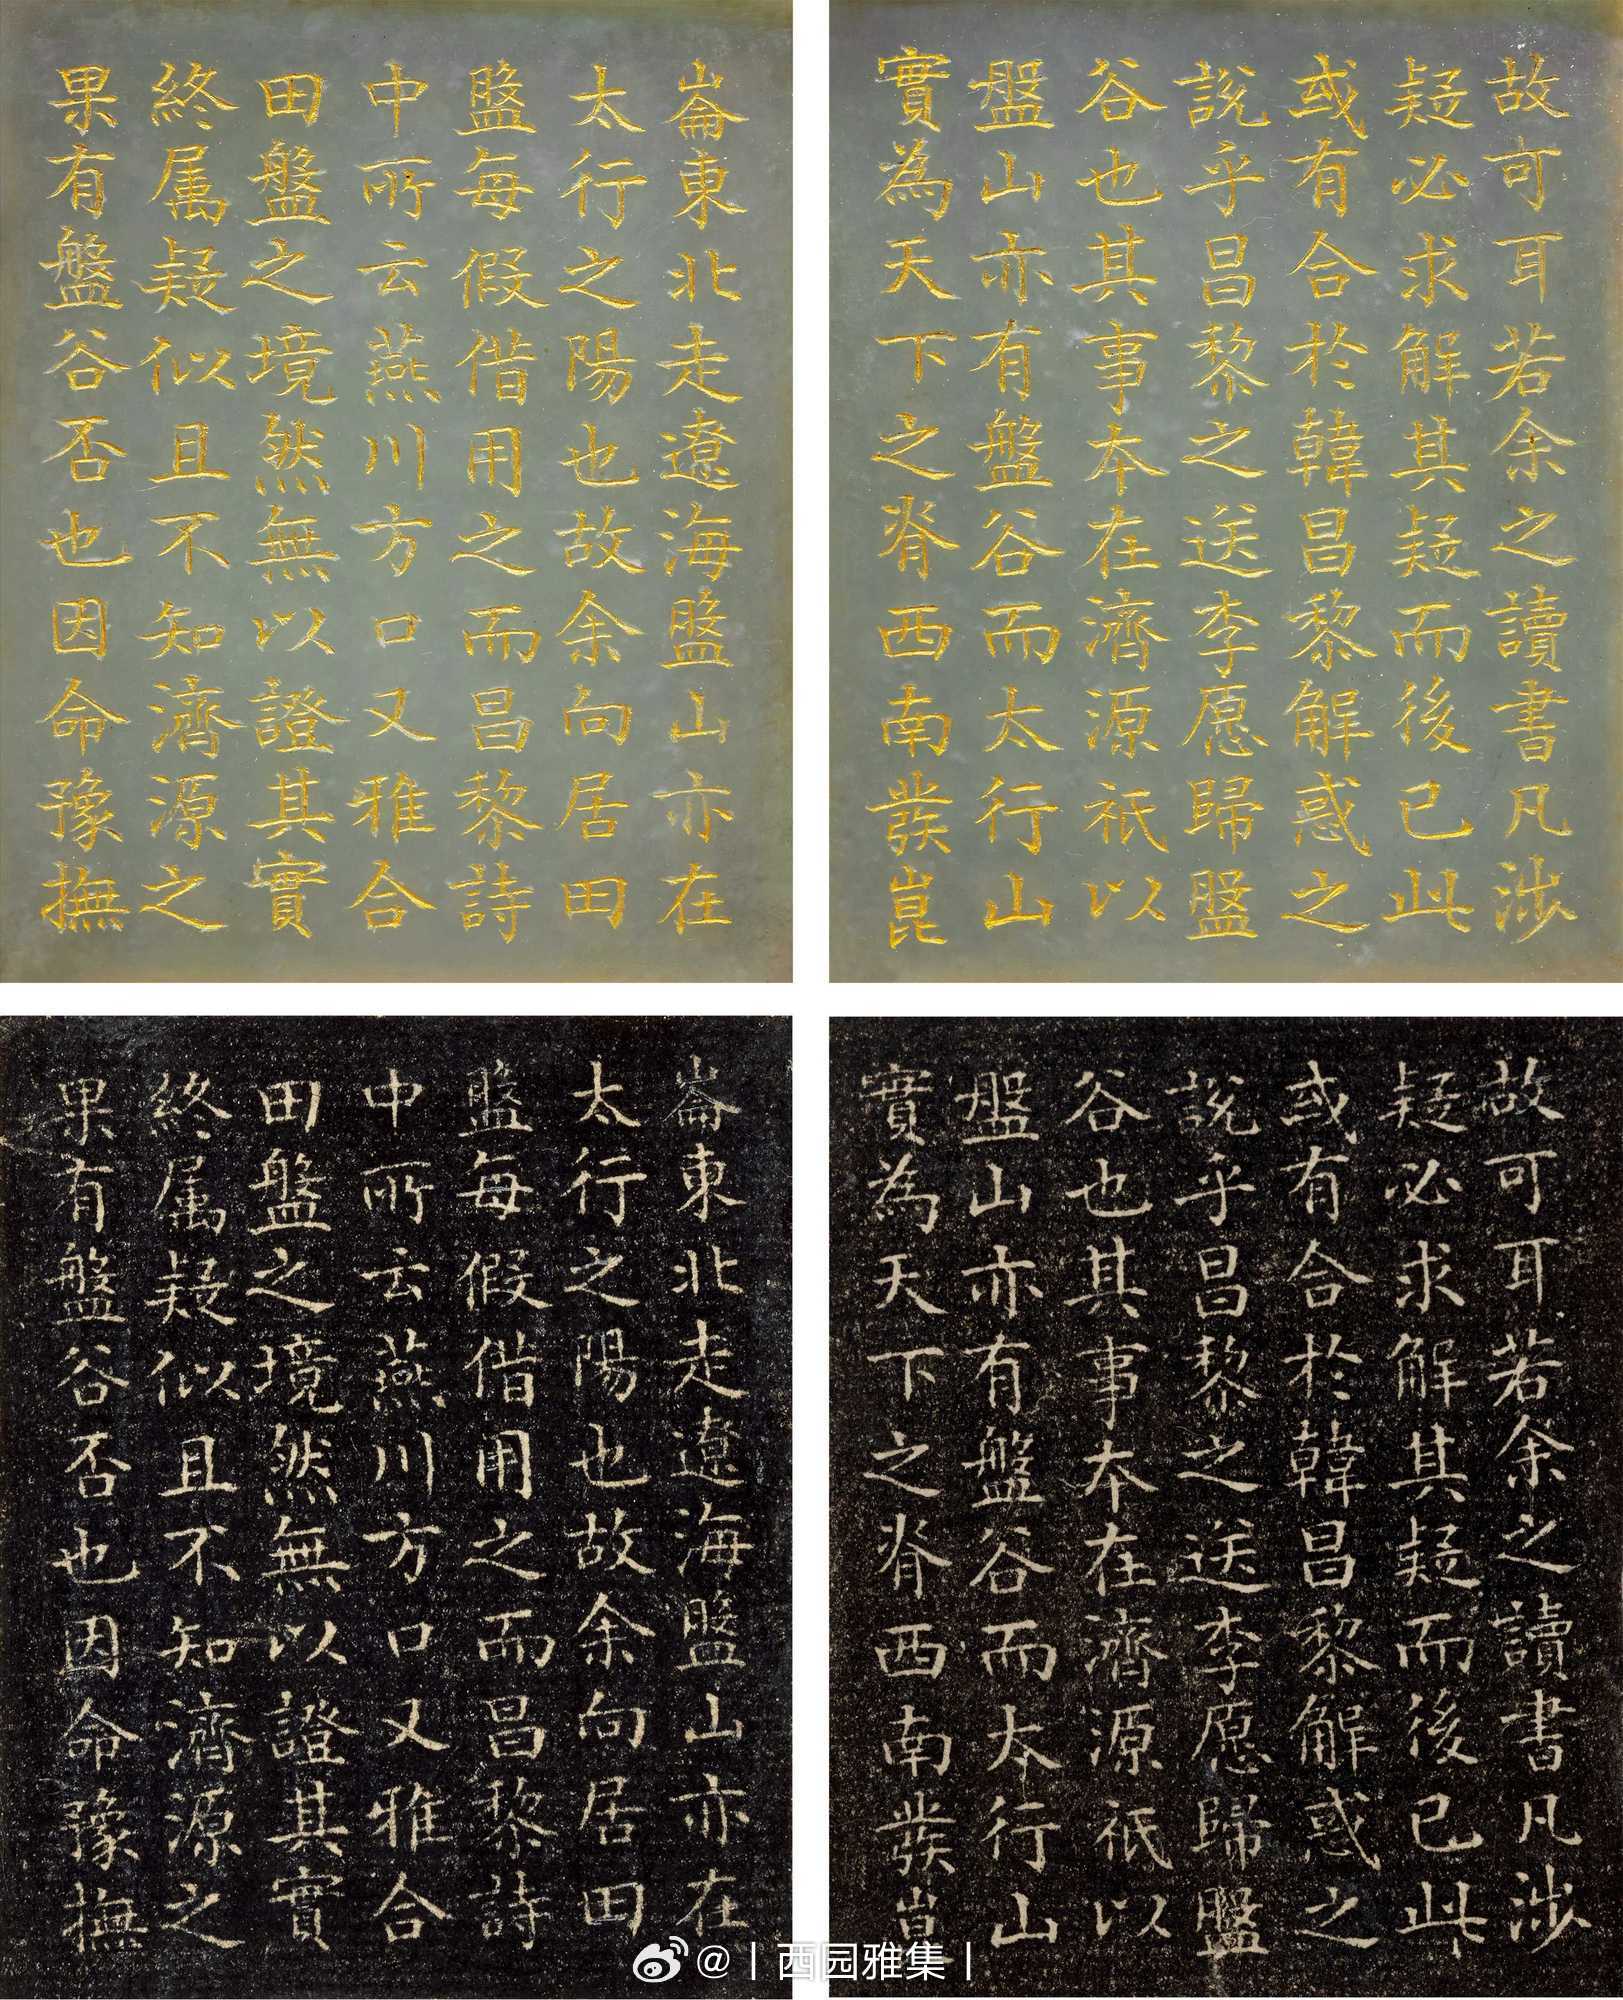 故可耳若余之讀書凡涉
疑必求解其疑而後已此
或有合於韓昌黎解惑之
說乎昌黎之送李愿歸盤
谷也其事本在濟源祇以
盤山亦有盤谷而太行山
實為天下之脊西南發崑
崙東北走遼海盤山亦在
太行之陽也故余向居田
盤每假借用之而昌黎詩
中所云燕川方口又雅合
田盤之境然無以證其實
終属疑似且不知濟源之
果有盤谷否也因命豫撫
故可耳若余之讀書凡涉
疑必求解其疑而後已此
或有合於韓昌黎解惑之
說乎昌黎之送李愿歸盤
谷也其事本在濟源祇以
盤山亦有盤谷而太行山
實為天下之脊西南發崑
崙東北走遼海盤山亦在
太行之陽也故余向居田
盤每假借用之而昌黎詩
中所云燕川方口又雅合
田盤之境然無以證其實
終属疑似且不知濟源之
果有盤谷否也因命豫撫
@丨西园雅集丨